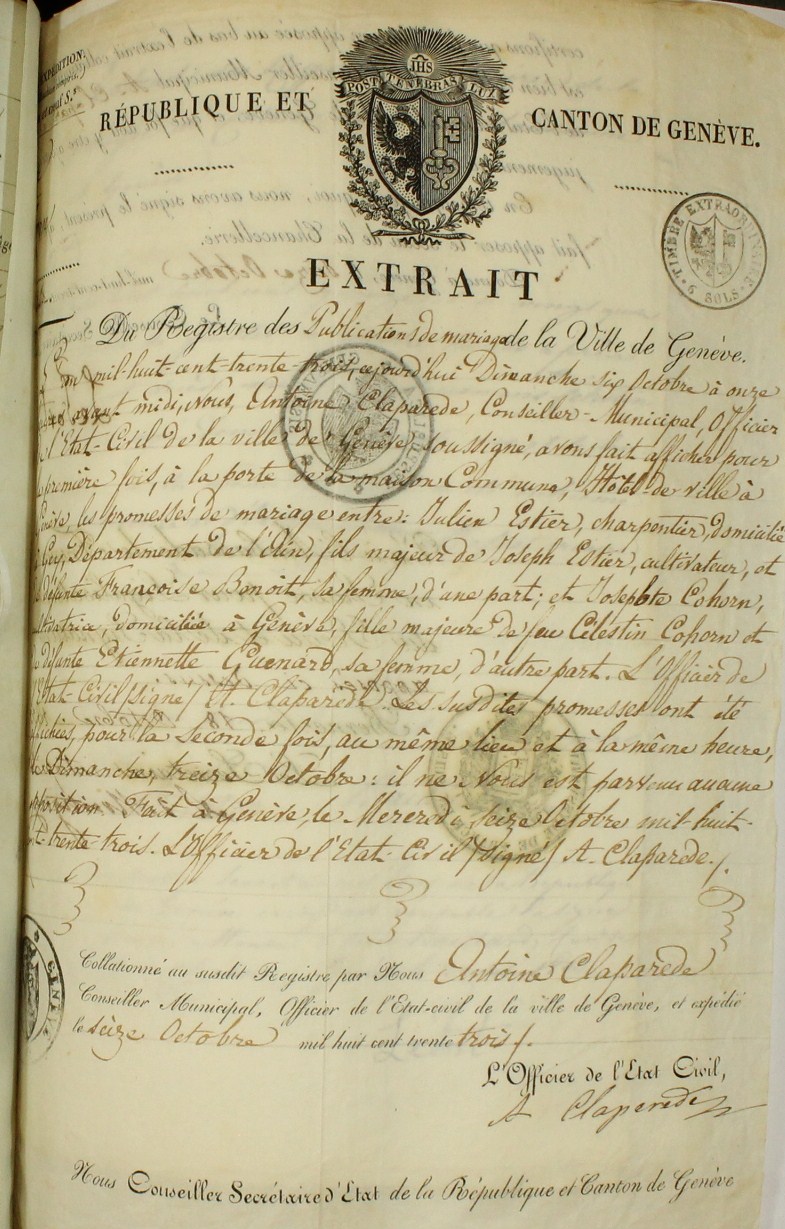 JHS
POST TENEBRAS LUX
RÉPUBLIQUE ET CANTON DE GENÈVE.
TIMBRE EXTRAORDINAIRE
9 SOLS
EXTRAIT
Du Registre des Publications de mariage de la Ville de Genève.
mil-huit cent trente trois, cejourd'hui Dimanche six Octobre à onze
avant midi, nous, Antoine Claparede, Conseiller-Municipal, Officier
l'Etat-Civil de la ville de Genève, soussigné, avons fait afficher pour
première fois, à la porte de la maison Commune, Hôtel-de-ville à
Genève, les promesses de mariage entre: Julien Estier, charpentier, domicilié
Gex, Département de l'Ain, fils majeur de Joseph Estier, cultivateur, et
défunte Francoise Benoit, sa femme, d'une part; et Josephte Cohorn,
domiciliée à Genève, fille majeure de feu Célestin Cohorn et
défunte Etiennette Guenard, sa femme, d'autre part. L'Officier de
l'Etat-Civil /signé/ A. Claparede. Les susdites promesses ont été
affichées, pour la seconde fois, au même lieu et à la même heure,
le Dimanche, treize Octobre: il ne nous est parvenu aucune
opposition. Fait à Genève, le Mercredi, seize Octobre mil-huit-
cent-trente-trois. L'Officier de l'Etat-Civil /signé/ A. Claparede./.
Collationné au susdit Registre par Nous Antoine Claparede
Conseiller Municipal, Officier de l'Etat-civil de la ville de Genève, et expédié
le seize Octobre mil huit cent trente trois /.
L'Officier de l'Etat Civil,
A Claparede
Nous Conseiller Secrétaire d'Etat de la République et Canton de Genève